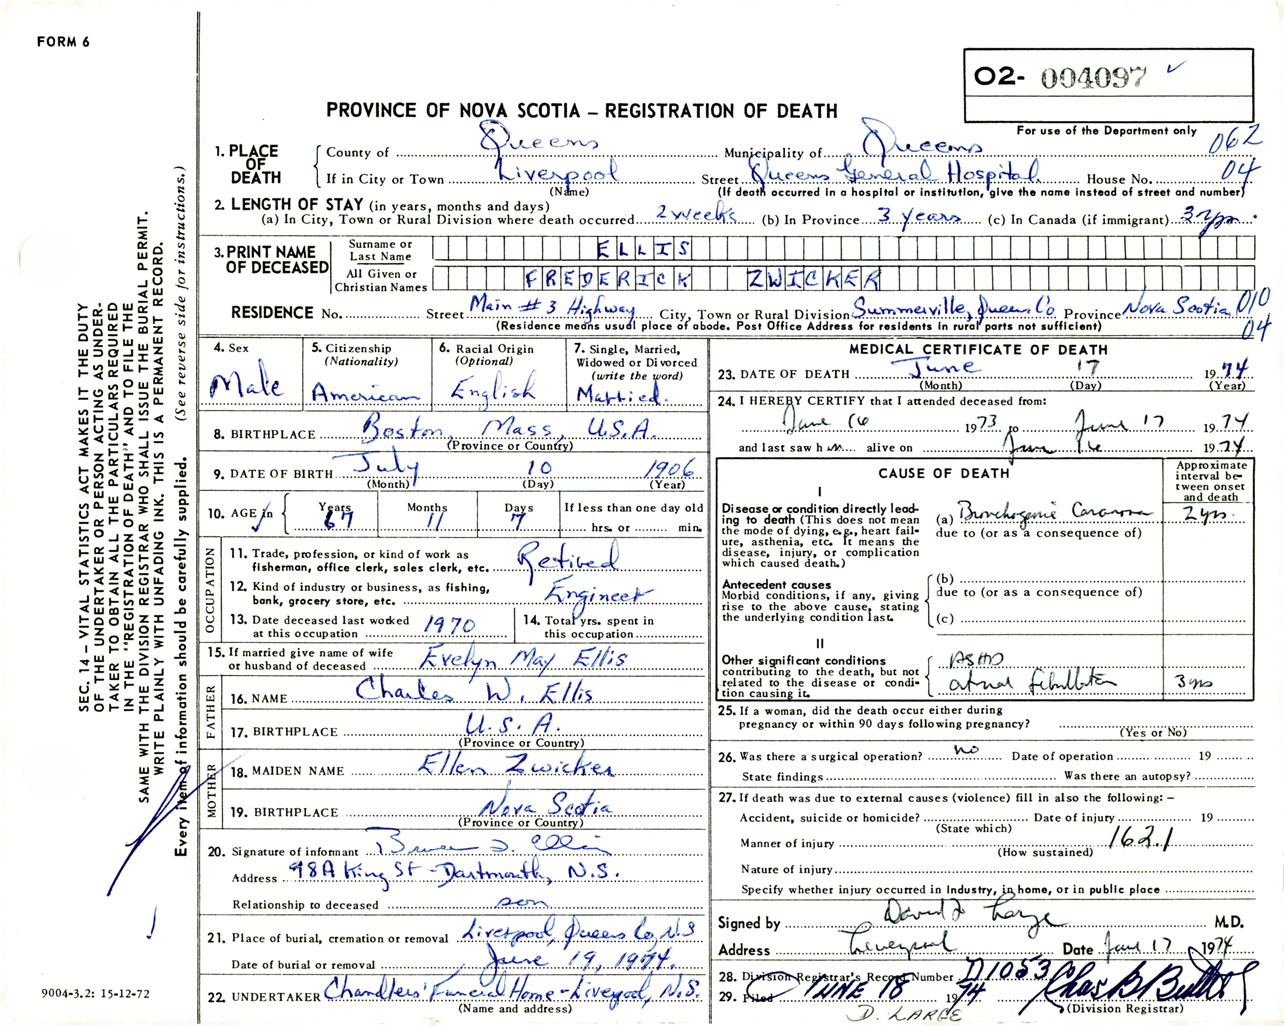 FORM 6
O2- 004097 ✓
For use of the Department only
PROVINCE OF NOVA SCOTIA – REGISTRATION OF DEATH
062
04
1. PLACE OF DEATH
County of Queens Municipality of Queens
If in City or Town Liverpool Street Queens General Hospital House No.
(Name) (If death occurred in a hospital or institution, give the name instead of street and number)
2. LENGTH OF STAY (in years, months and days)
(a) In City, Town or Rural Division where death occurred 2 weeks (b) In Province 3 years (c) In Canada (if immigrant) 3 yrs.
3. PRINT NAME OF DECEASED
Surname or Last Name ELLIS
All Given or Christian Names FREDERICK ZWICKER
RESIDENCE No. Street Main #3 Highway City, Town or Rural Division Summerville, Queens Co Province Nova Scotia 010
04
(Residence means usual place of abode. Post Office Address for residents in rural parts not sufficient)
4. Sex
Male
5. Citizenship
(Nationality)
American
6. Racial Origin
(Optional)
English
7. Single, Married,
Widowed or Divorced
(write the word)
Married.
8. BIRTHPLACE Boston, Mass, U.S.A.
(Province or Country)
9. DATE OF BIRTH July 10 1906
(Month) (Day) (Year)
10. AGE in Years 67 Months 11 Days 7 If less than one day old
hrs. or min.
OCCUPATION
11. Trade, profession, or kind of work as
fisherman, office clerk, sales clerk, etc. Retired
12. Kind of industry or business, as fishing,
bank, grocery store, etc. Engineer
13. Date deceased last worked
at this occupation 1970
14. Total yrs. spent in
this occupation
15. If married give name of wife
or husband of deceased Evelyn May Ellis
FATHER
16. NAME Charles W. Ellis
17. BIRTHPLACE U.S.A.
(Province or Country)
MOTHER
18. MAIDEN NAME Ellen Zwicker
19. BIRTHPLACE Nova Scotia
(Province or Country)
20. Signature of informant Ellis
Address 98A King St - Dartmouth, N.S.
Relationship to deceased son
21. Place of burial, cremation or removal Liverpool, Queens Co, N.S
Date of burial or removal June 19, 1974.
22. UNDERTAKER Chandlers' Funeral Home - Liverpool, N.S.
(Name and address)
MEDICAL CERTIFICATE OF DEATH
23. DATE OF DEATH June 17 1974
(Month) (Day) (Year)
24. I HEREBY CERTIFY that I attended deceased from:
June 16 1973 to June 17 1974
and last saw h im alive on June 16 1974
CAUSE OF DEATH
Approximate
interval be-
tween onset
and death
I
Disease or condition directly lead-
ing to death (This does not mean
the mode of dying, e.g., heart fail-
ure, asthenia, etc. It means the
disease, injury, or complication
which caused death.)
(a) Bronchogenic Carcinoma 2 yrs.
due to (or as a consequence of)
Antecedent causes
Morbid conditions, if any, giving
rise to the above cause, stating
the underlying condition last.
(b)
due to (or as a consequence of)
(c)
II
Other significant conditions
contributing to the death, but not
related to the disease or condi-
tion causing it.
ASHD
atrial fibrillation 3 yrs
25. If a woman, did the death occur either during
pregnancy or within 90 days following pregnancy?
(Yes or No)
26. Was there a surgical operation? no Date of operation 19
State findings Was there an autopsy?
27. If death was due to external causes (violence) fill in also the following: –
Accident, suicide or homicide? Date of injury 19
(State which)
Manner of injury 162.1
(How sustained)
Nature of injury
Specify whether injury occurred in Industry, in home, or in public place
Signed by David Large M.D.
Address Liverpool Date June 17 1974
28. Division Registrar's Record Number D1053
29. Filed JUNE 18 1974 Chas B
(Division Registrar)
D. LARGE
SEC. 14 – VITAL STATISTICS ACT MAKES IT THE DUTY
OF THE UNDERTAKER OR PERSON ACTING AS UNDER-
TAKER TO OBTAIN ALL THE PARTICULARS REQUIRED
IN THE "REGISTRATION OF DEATH" AND TO FILE THE
SAME WITH THE DIVISION REGISTRAR WHO SHALL ISSUE THE BURIAL PERMIT.
WRITE PLAINLY WITH UNFADING INK. THIS IS A PERMANENT RECORD.
Every item of information should be carefully supplied. (See reverse side for instructions.)
9004-3.2: 15-12-72